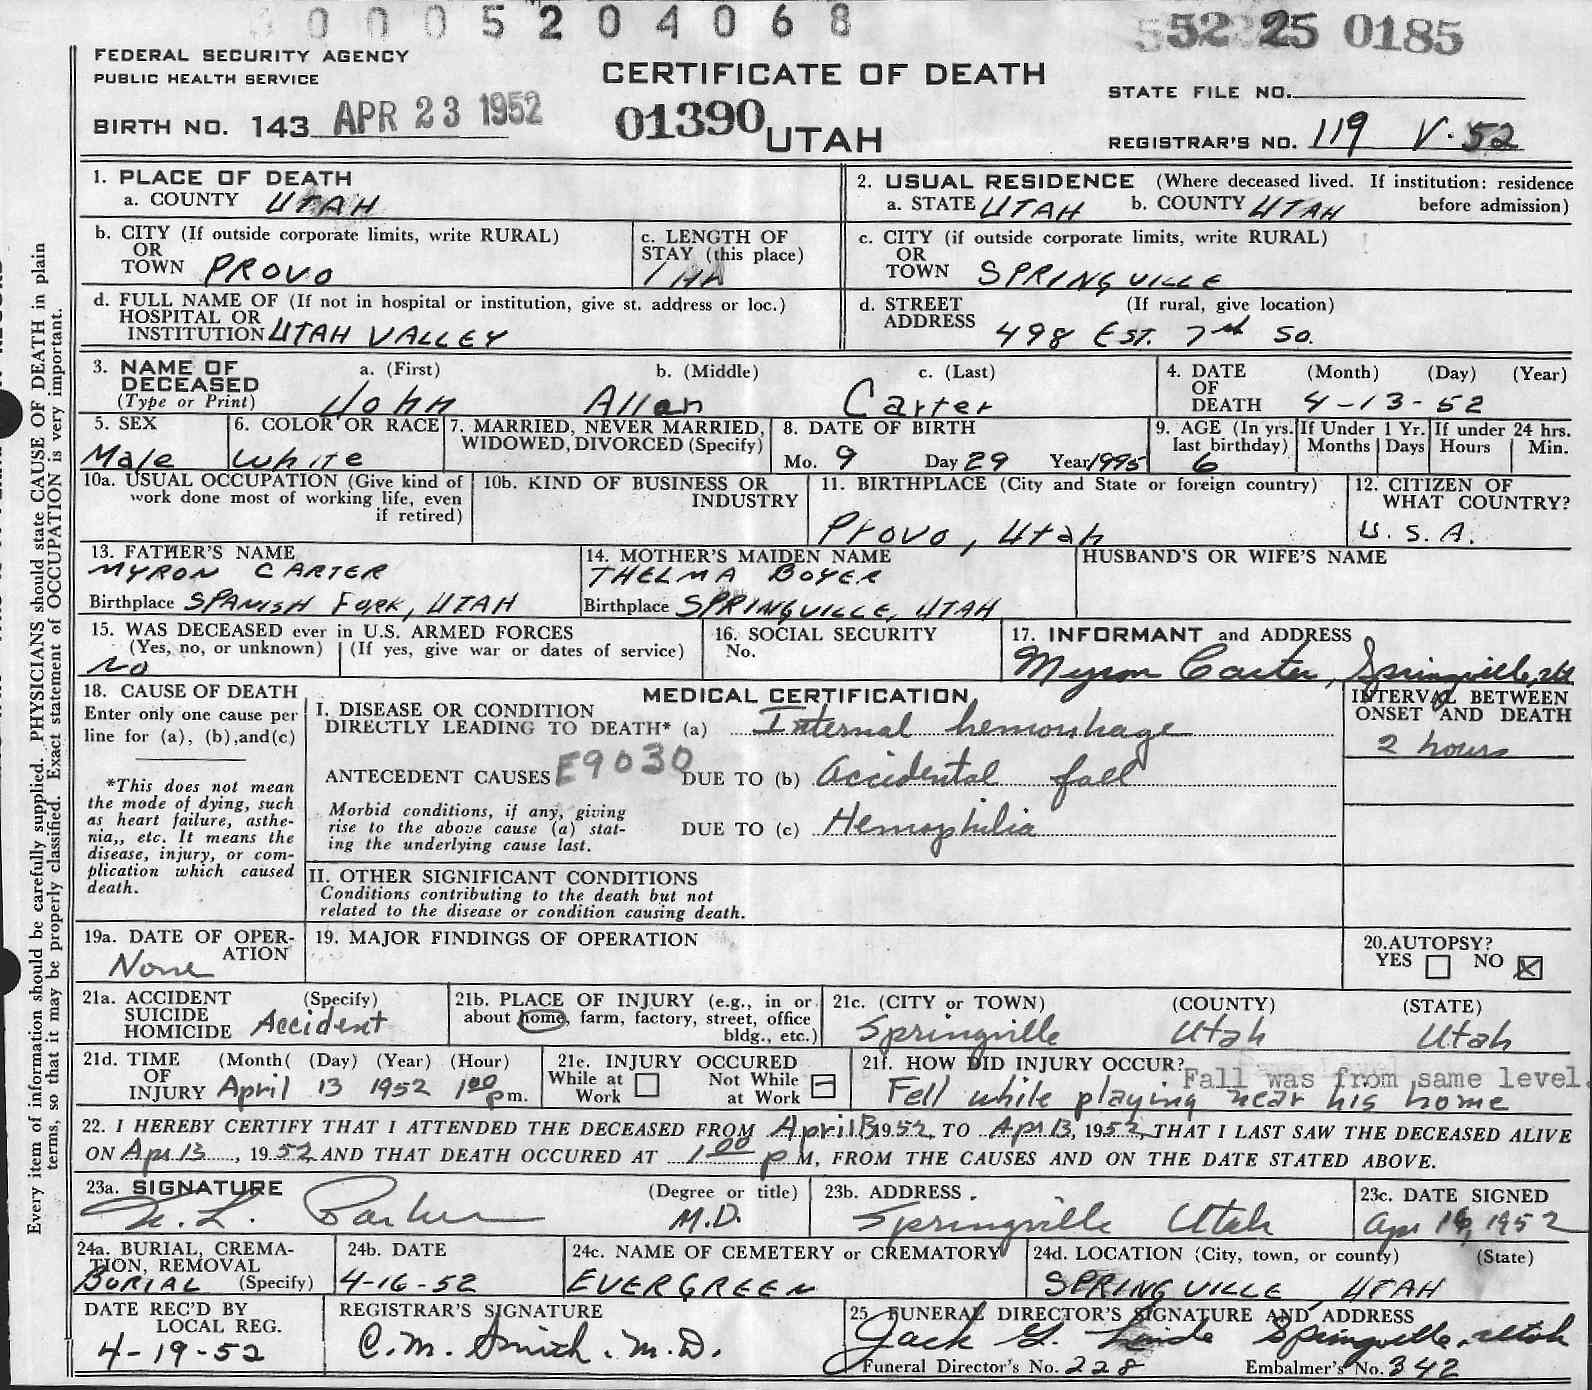 0005204068
52 25 0185
FEDERAL SECURITY AGENCY
PUBLIC HEALTH SERVICE
CERTIFICATE OF DEATH
STATE FILE NO.
BIRTH NO. 143 APR 23 1952
01390 UTAH
REGISTRAR'S NO. 119 V-52
1. PLACE OF DEATH
a. COUNTY UTAH
2. USUAL RESIDENCE (Where deceased lived. If institution: residence before admission)
a. STATE UTAH b. COUNTY UTAH
b. CITY (If outside corporate limits, write RURAL)
OR
TOWN PROVO
c. LENGTH OF
STAY (this place)
c. CITY (if outside corporate limits, write RURAL)
OR
TOWN SPRINGVILLE
d. FULL NAME OF (If not in hospital or institution, give st. address or loc.)
HOSPITAL OR
INSTITUTION UTAH VALLEY
d. STREET (If rural, give location)
ADDRESS 498 EST. 7th SO.
3. NAME OF DECEASED (Type or Print)
a. (First) b. (Middle) c. (Last)
John Allan Carter
4. DATE OF DEATH (Month) (Day) (Year)
4-13-52
5. SEX
Male
6. COLOR OR RACE
White
7. MARRIED, NEVER MARRIED,
WIDOWED, DIVORCED (Specify)
8. DATE OF BIRTH
Mo. 9 Day 29 Year 1995
9. AGE (In yrs. last birthday)
6
If Under 1 Yr.
Months Days
If under 24 hrs.
Hours Min.
10a. USUAL OCCUPATION (Give kind of
work done most of working life, even
if retired)
10b. KIND OF BUSINESS OR
INDUSTRY
11. BIRTHPLACE (City and State or foreign country)
Provo, Utah
12. CITIZEN OF
WHAT COUNTRY?
U.S.A.
13. FATHER'S NAME
MYRON CARTER
Birthplace SPANISH FORK, UTAH
14. MOTHER'S MAIDEN NAME
THELMA BOYER
Birthplace SPRINGVILLE, UTAH
HUSBAND'S OR WIFE'S NAME
15. WAS DECEASED ever in U.S. ARMED FORCES
(Yes, no, or unknown) (If yes, give war or dates of service)
No
16. SOCIAL SECURITY
No.
17. INFORMANT and ADDRESS
Myron Carter, Springville, Ut
18. CAUSE OF DEATH
Enter only one cause per
line for (a), (b), and (c)
*This does not mean
the mode of dying, such
as heart failure, asthe-
nia,, etc. It means the
disease, injury, or com-
plication which caused
death.
MEDICAL CERTIFICATION
I. DISEASE OR CONDITION
DIRECTLY LEADING TO DEATH* (a) Internal hemorrhage
INTERVAL BETWEEN
ONSET AND DEATH
2 hours
ANTECEDENT CAUSES E9030 DUE TO (b) Accidental fall
Morbid conditions, if any, giving
rise to the above cause (a) stat-
ing the underlying cause last.
DUE TO (c) Hemophilia
II. OTHER SIGNIFICANT CONDITIONS
Conditions contributing to the death but not
related to the disease or condition causing death.
19a. DATE OF OPER-
ATION
None
19. MAJOR FINDINGS OF OPERATION
20. AUTOPSY?
YES NO
21a. ACCIDENT (Specify)
SUICIDE
HOMICIDE Accident
21b. PLACE OF INJURY (e.g., in or
about home, farm, factory, street, office
bldg., etc.)
21c. (CITY or TOWN) (COUNTY) (STATE)
Springville Utah Utah
21d. TIME (Month( (Day) (Year) (Hour)
OF
INJURY April 13 1952 1:00 pm.
21e. INJURY OCCURED
While at Work
Not While at Work
21f. HOW DID INJURY OCCUR?
Fall was from same level.
Fell while playing near his home
22. I HEREBY CERTIFY THAT I ATTENDED THE DECEASED FROM April 13 1952, TO Apr 13, 1952, THAT I LAST SAW THE DECEASED ALIVE
ON Apr 13, 1952 AND THAT DEATH OCCURED AT 1:00 p M., FROM THE CAUSES AND ON THE DATE STATED ABOVE.
23a. SIGNATURE (Degree or title)
L. Parker M.D.
23b. ADDRESS.
Springville Utah
23c. DATE SIGNED
Apr 16, 1952
24a. BURIAL, CREMA-
TION, REMOVAL
BURIAL (Specify)
24b. DATE
4-16-52
24c. NAME OF CEMETERY or CREMATORY
EVERGREEN
24d. LOCATION (City, town, or county) (State)
SPRINGVILLE, UTAH
DATE REC'D BY
LOCAL REG.
4-19-52
REGISTRAR'S SIGNATURE
C.M. Smith, M.D.
25 FUNERAL DIRECTOR'S SIGNATURE AND ADDRESS
Jack Springville, Utah
Funeral Director's No. 228 Embalmer's No. 342
Every item of information should be carefully supplied. PHYSICIANS should state CAUSE OF DEATH in plain
terms, so that it may be properly classified. Exact statement of OCCUPATION is very important.